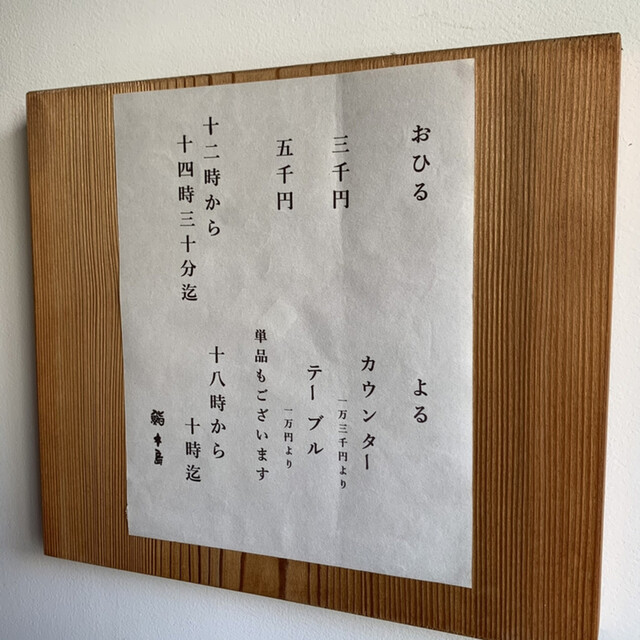 おひる
三千円
五千円
十二時から
十四時三十分迄
よる
カウンター
一万三千円より
テーブル
一万円より
単品もございます
十八時から
十時迄